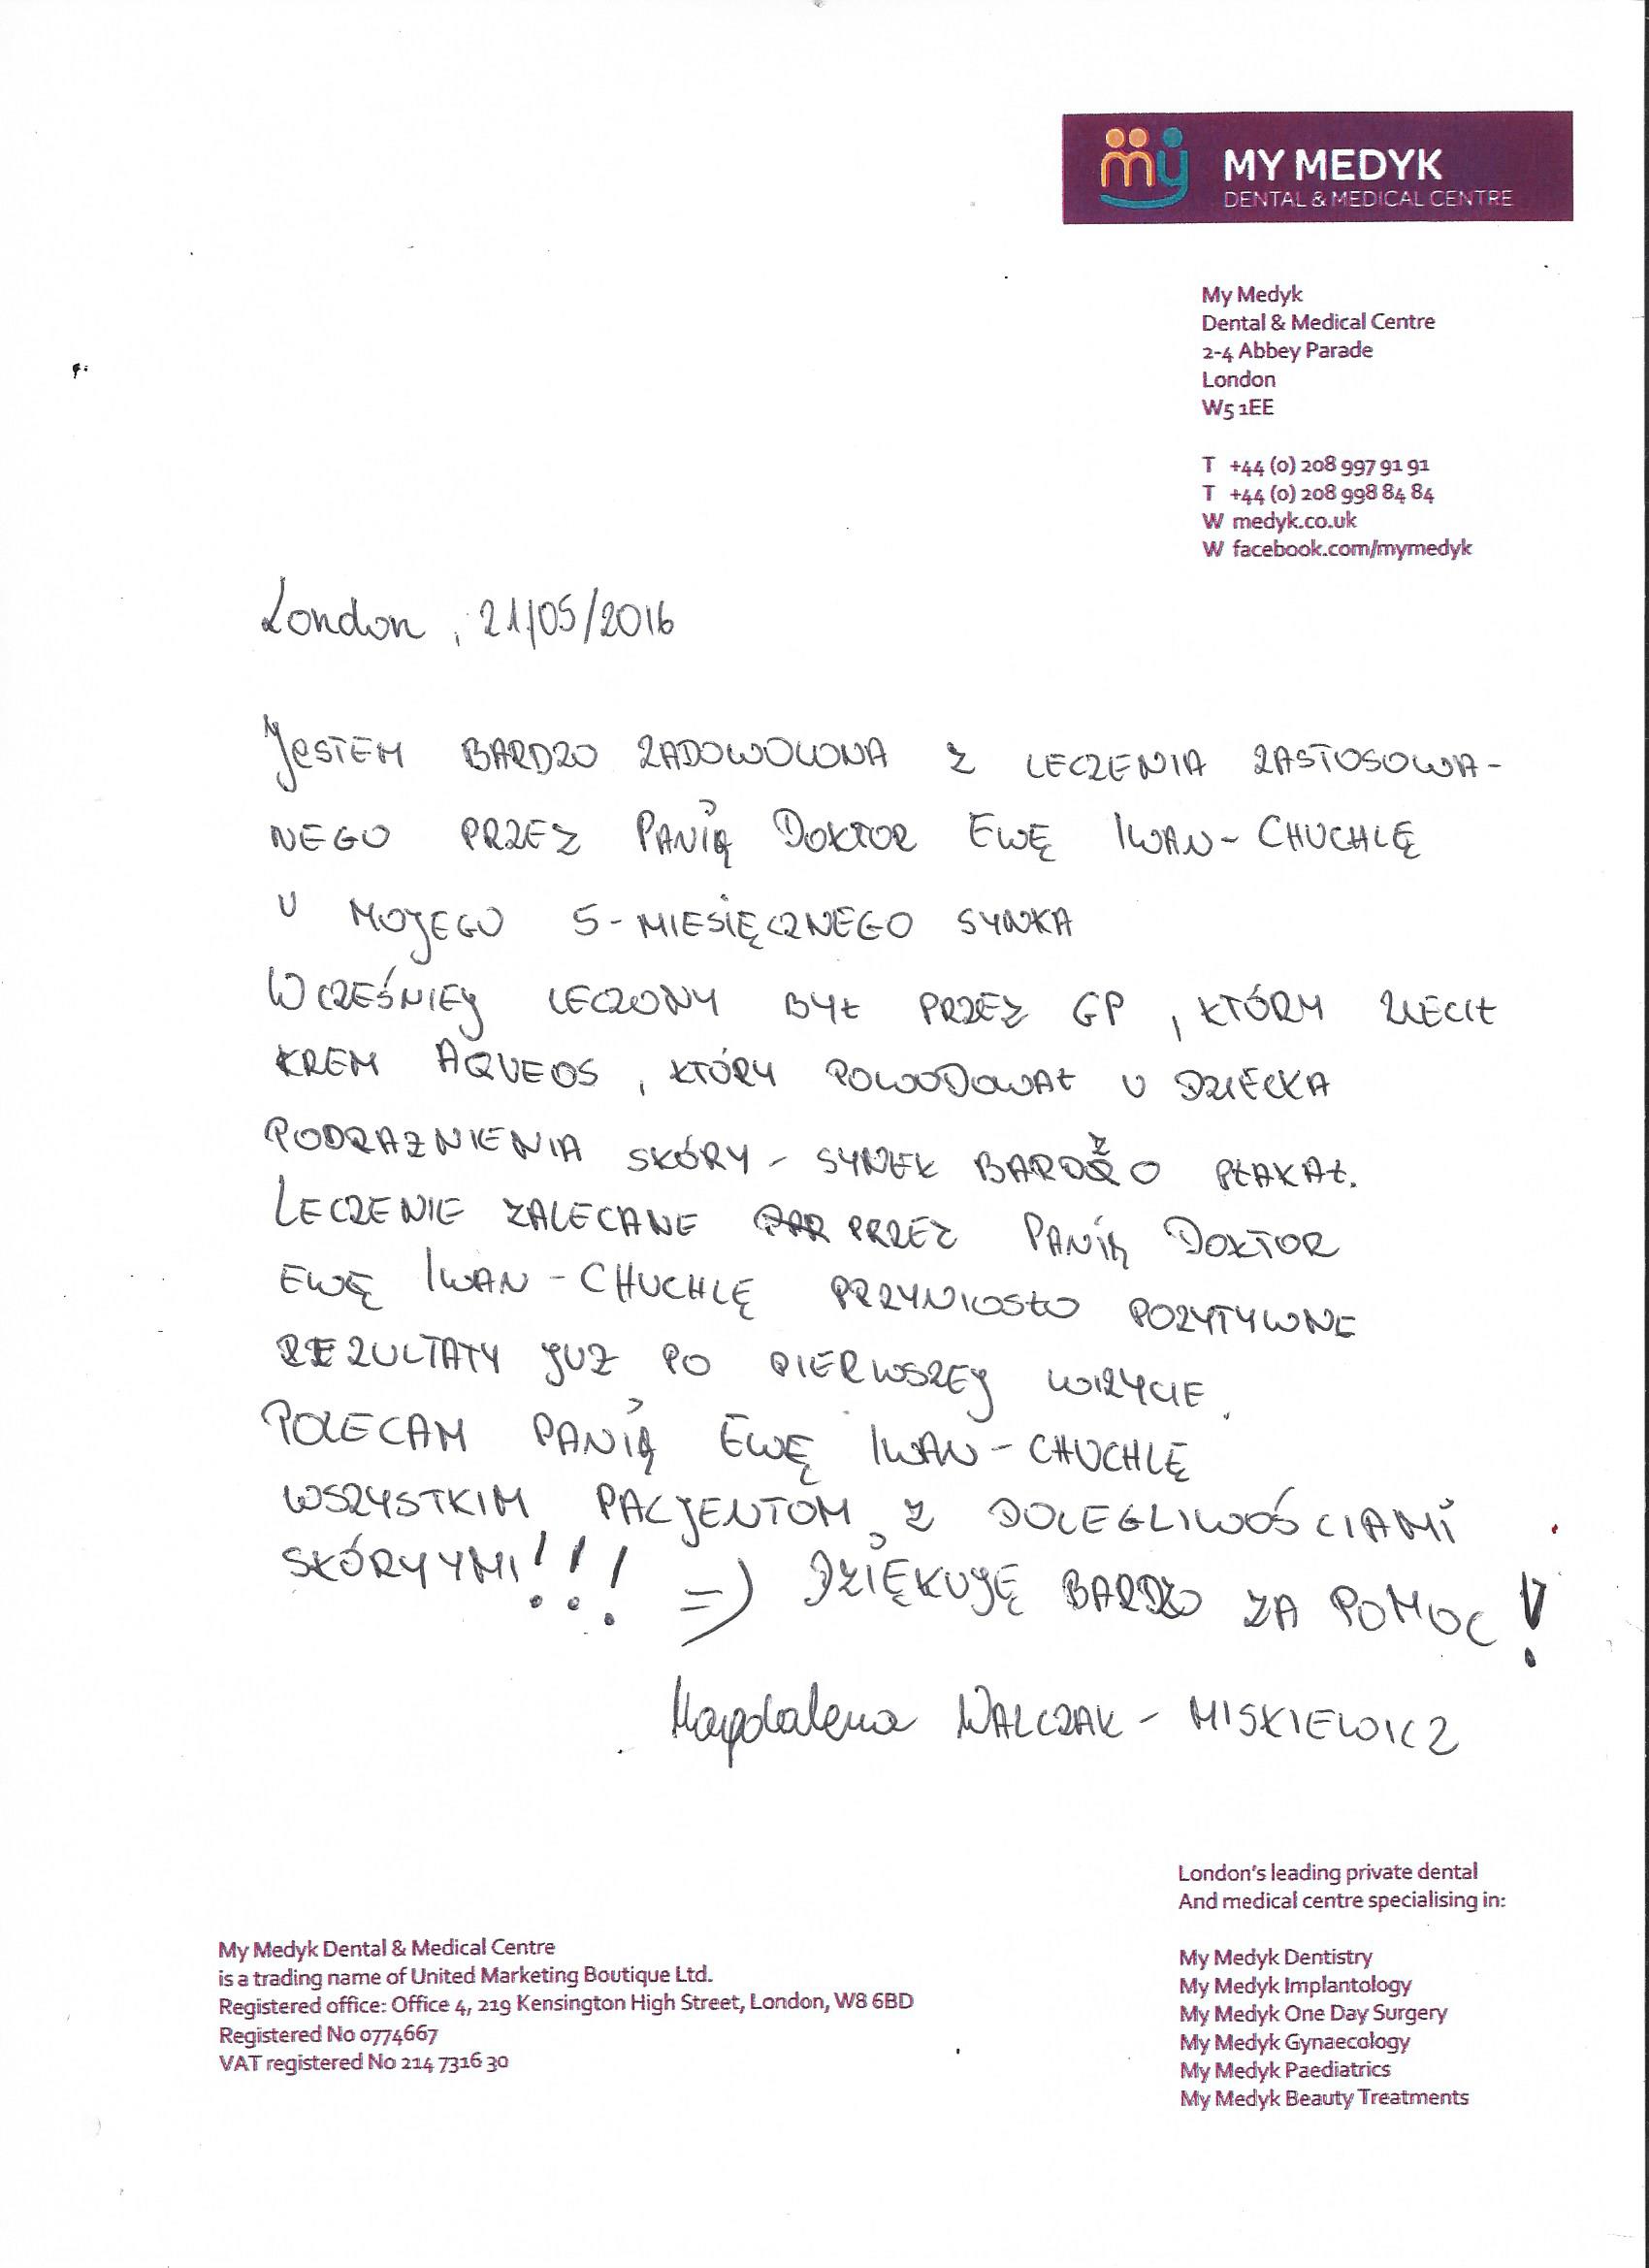 my MY MEDYK
DENTAL & MEDICAL CENTRE
My Medyk
Dental & Medical Centre
2-4 Abbey Parade
London
W5 1EE
T +44 (0) 208 997 91 91
T +44 (0) 208 998 84 84
W medyk.co.uk
W facebook.com/mymedyk
London, 21/05/2016
JESTEM BARDZO ZADOWOLONA Z LECZENIA ZASTOSOWA-
NEGO PRZEZ PANIĄ DOKTOR EWĘ IWAN-CHUCHLĘ
U MOJEGO 5-MIESIĘCZNEGO SYNKA
WCZEŚNIEJ LECZONY BYŁ PRZEZ GP, KTÓRY ZLECIŁ
KREM AQUEOS, KTÓRY POWODOWAŁ U DZIECKA
PODRAZNIENIA SKÓRY - SYNEK BARDZO PŁAKAŁ.
LECZENIE ZALECANE PRZEZ PANIĄ DOKTOR
EWĘ IWAN-CHUCHLĘ PRZYNIOSŁO POZYTYWNE
REZULTATY JUZ PO PIERWSZEJ WIZYCIE.
POLECAM PANIĄ EWĘ IWAN-CHUCHLĘ
WSZYSTKIM PACJENTOM, Z DOLEGLIWOŚCIAMI
SKÓRYYMI!!! =) DZIĘKUJĘ BARDZO ZA POMOC!
Magdalena WALCZAK-MISKIEWICZ
London's leading private dental
And medical centre specialising in:
My Medyk Dental & Medical Centre
is a trading name of United Marketing Boutique Ltd.
Registered office: Office 4, 219 Kensington High Street, London, W8 6BD
Registered No 0774667
VAT registered No 214 7316 30
My Medyk Dentistry
My Medyk Implantology
My Medyk One Day Surgery
My Medyk Gynaecology
My Medyk Paediatrics
My Medyk Beauty Treatments